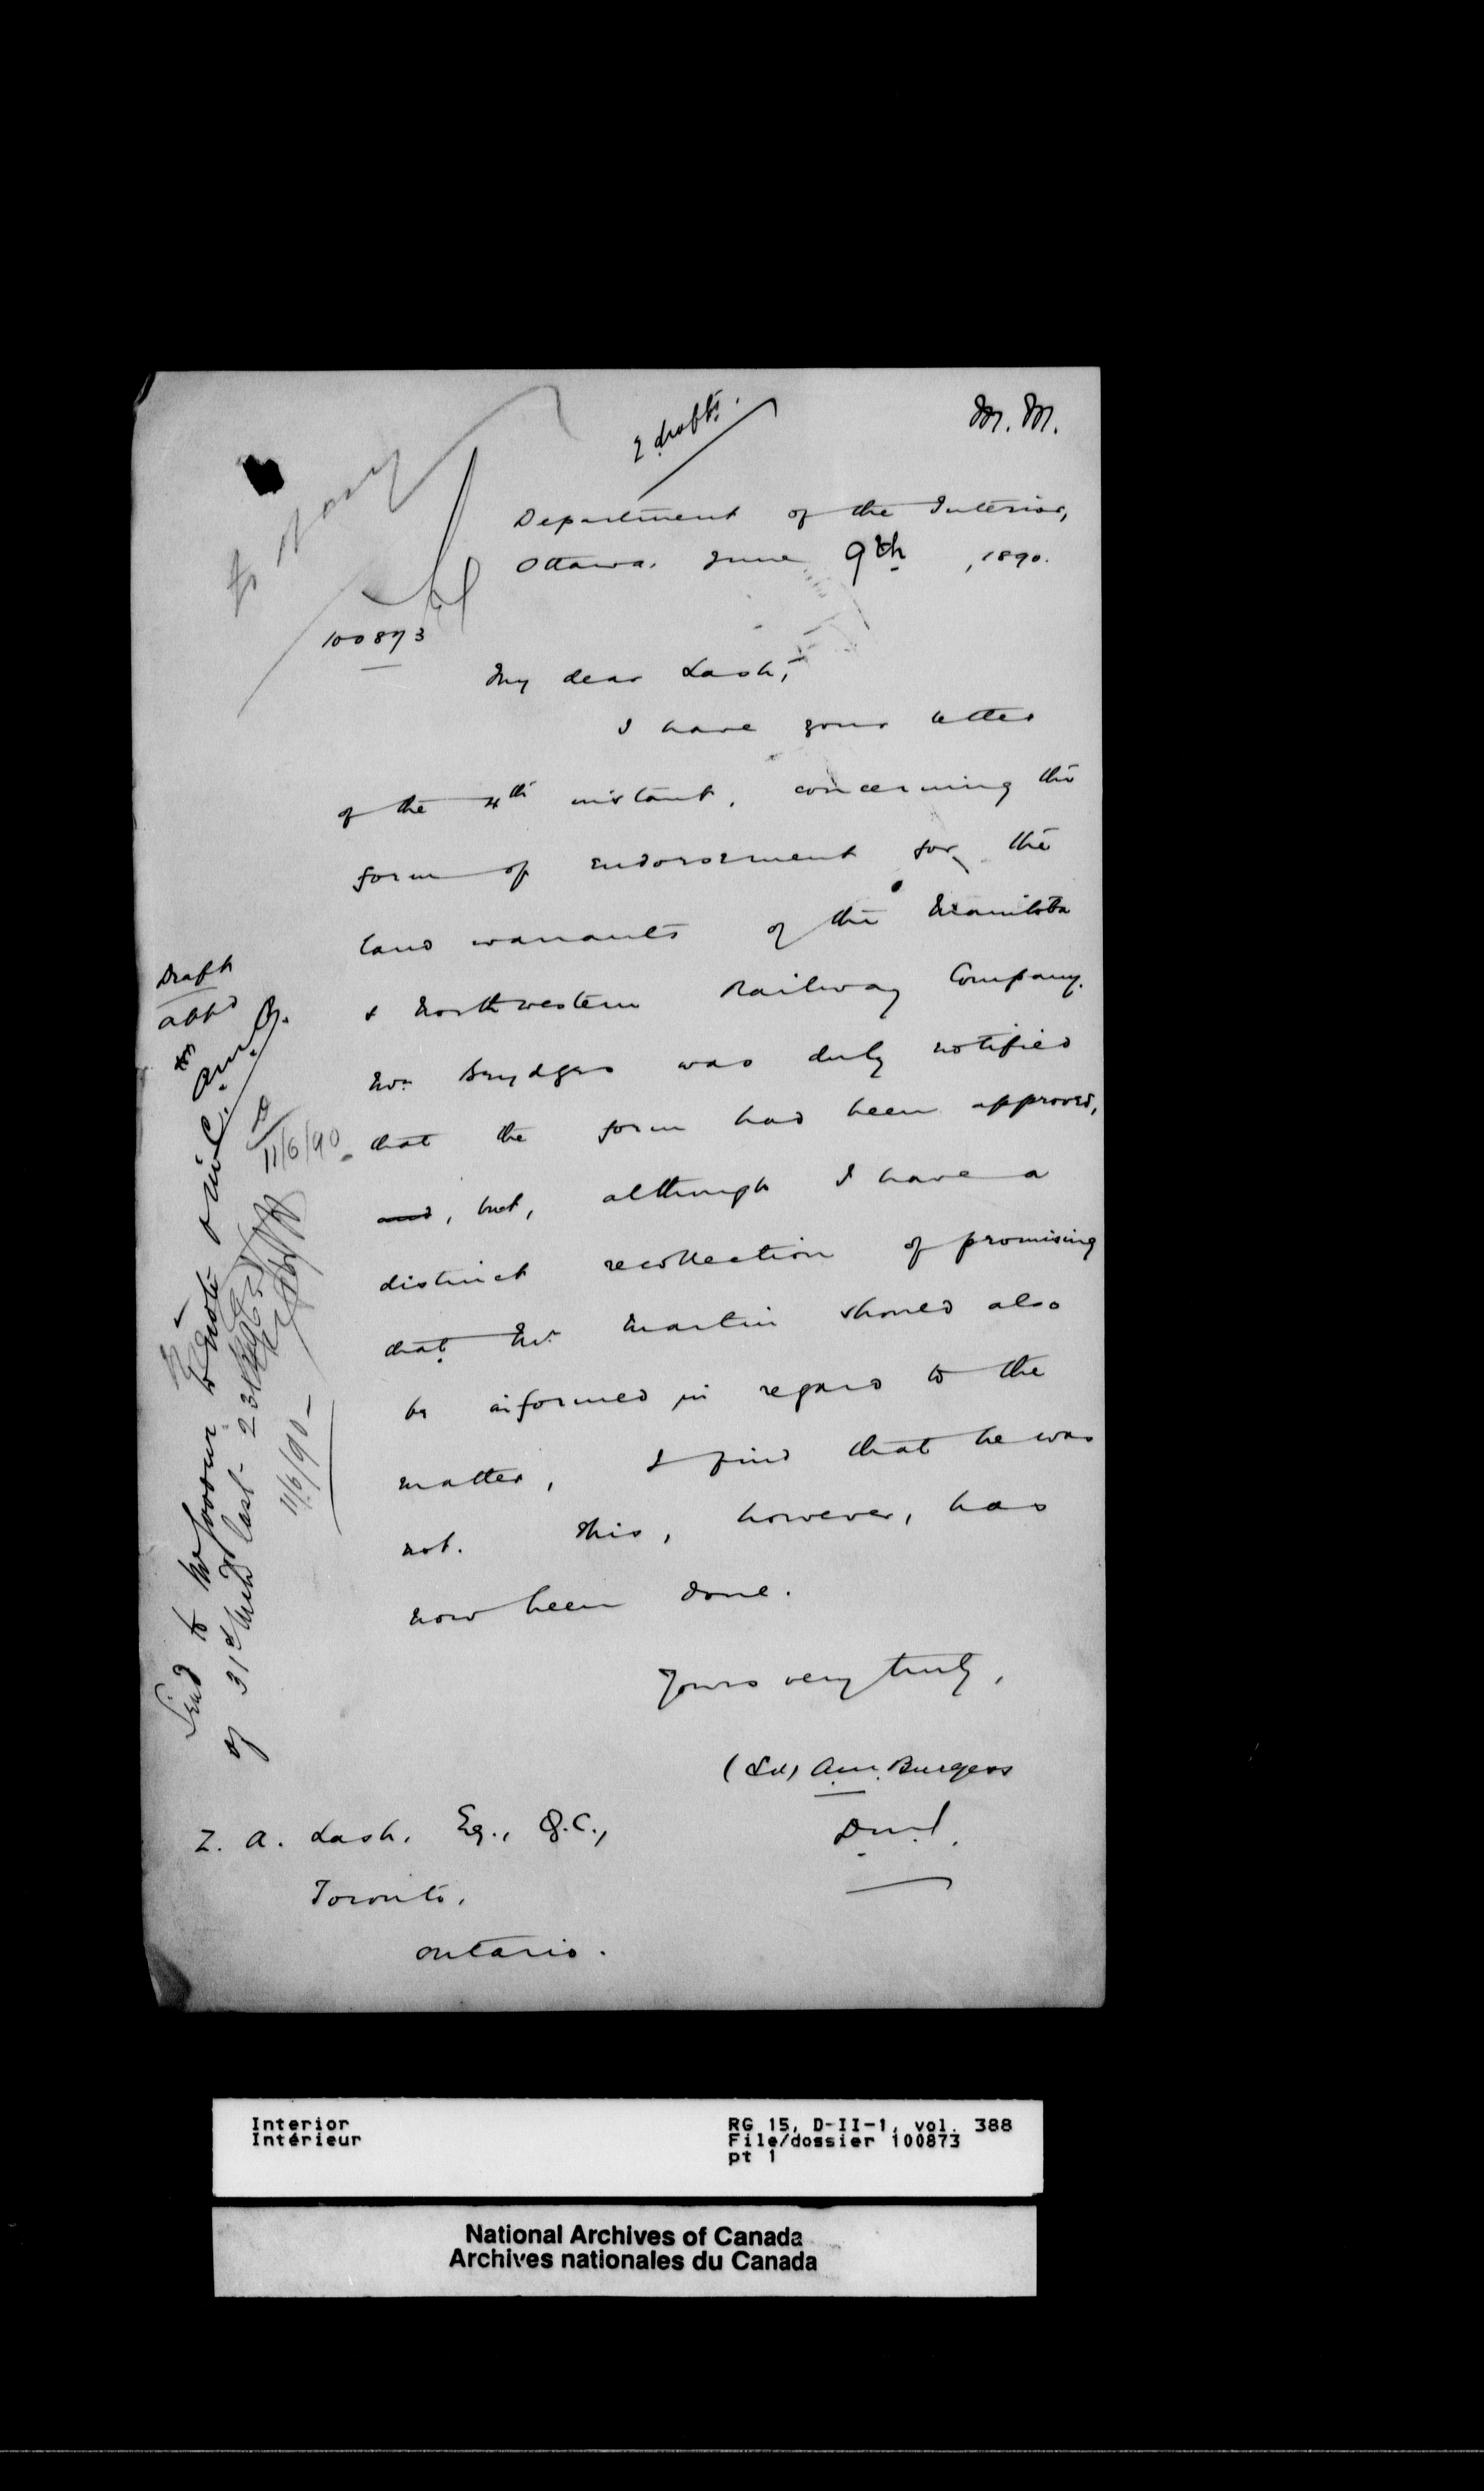 2 drafts.
M. M.
Department of the Interior,
Ottawa. June 9th, 1890.
100873
My dear Lash,
I have your letter
of the 4th instant, concerning the
form of endorsement for the
land warrants of the Manitoba
& Northwestern Railway Company.
Mr. Brydges was duly notified
that the form had been approved,
and, but, although I have a
distinct recollection of promising
that Mr. Martin should also
be informed in regard to the
matter, I find that he was
not. This, however, has
now been done.
Yours very truly,
(Sd) A.M. Burgess
D.M.I.
Z. A. Lash, Esq., Q.C.,
Toronto,
Ontario.
Draft
appd
A.M.B.
11/6/90
Send to
to note
of 31st last
11/6/90
Interior
Intérieur
RG 15, D-II-1, vol. 388
File/dossier 100873
pt 1
National Archives of Canada
Archives nationales du Canada